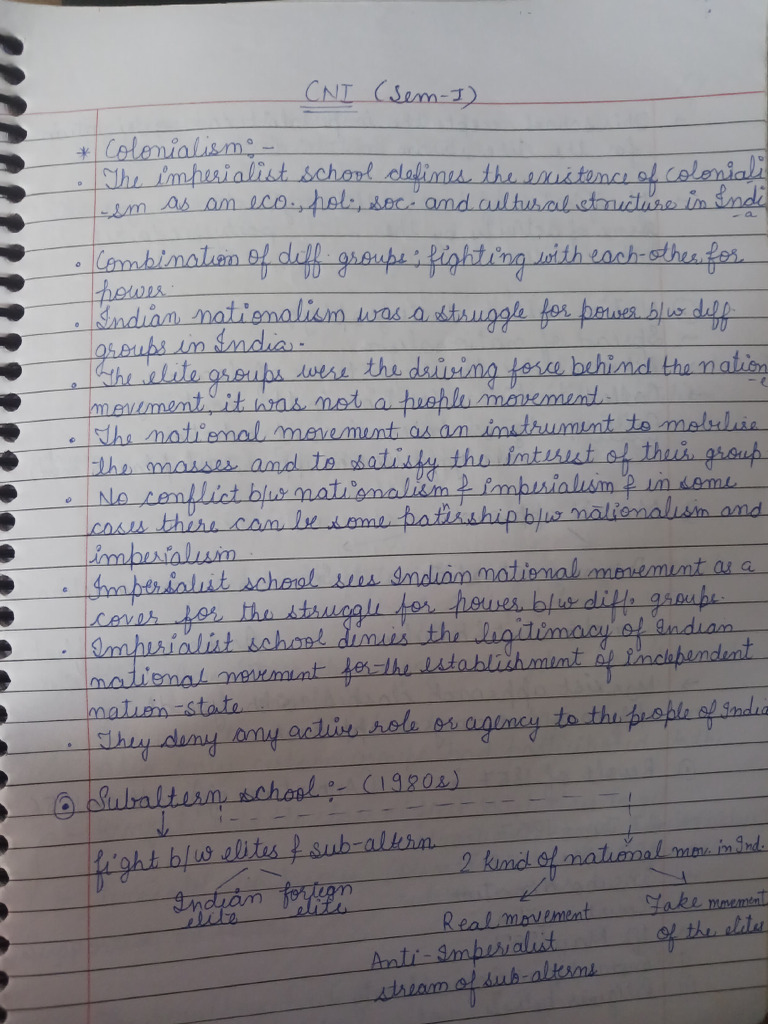 CNI (Sem-I)
* Colonialism:-
. The imperialist school defines the existence of coloniali
-sm as an eco., pol., soc. and cultural structure in Indi
-a
. Combination of diff. groups; fighting with each-other for
power.
. Indian nationalism was a struggle for power b/w diff.
groups in India.
. The elite groups were the driving force behind the nation
movement, it was not a people movement.
. The national movement as an instrument to mobilise
the masses and to satisfy the interest of their group
. No conflict b/w nationalism & imperialism & in some
cases there can be some patership b/w nationalism and
imperialism
. Imperialist school sees Indian national movement as a
cover for the struggle for power b/w diff. groups.
. Imperialist school denies the legitimacy of Indian
national movement for-the establishment of independent
nation-state
. They deny any active role or agency to the people of India
Subaltern school:- (1980s)
fight b/w elites & sub-altern
Indian elite
foriegn elite
2 kind of national mov. in Ind.
Real movement
Anti-Imperialist
stream of sub-alterns
Fake mmement
of the elites